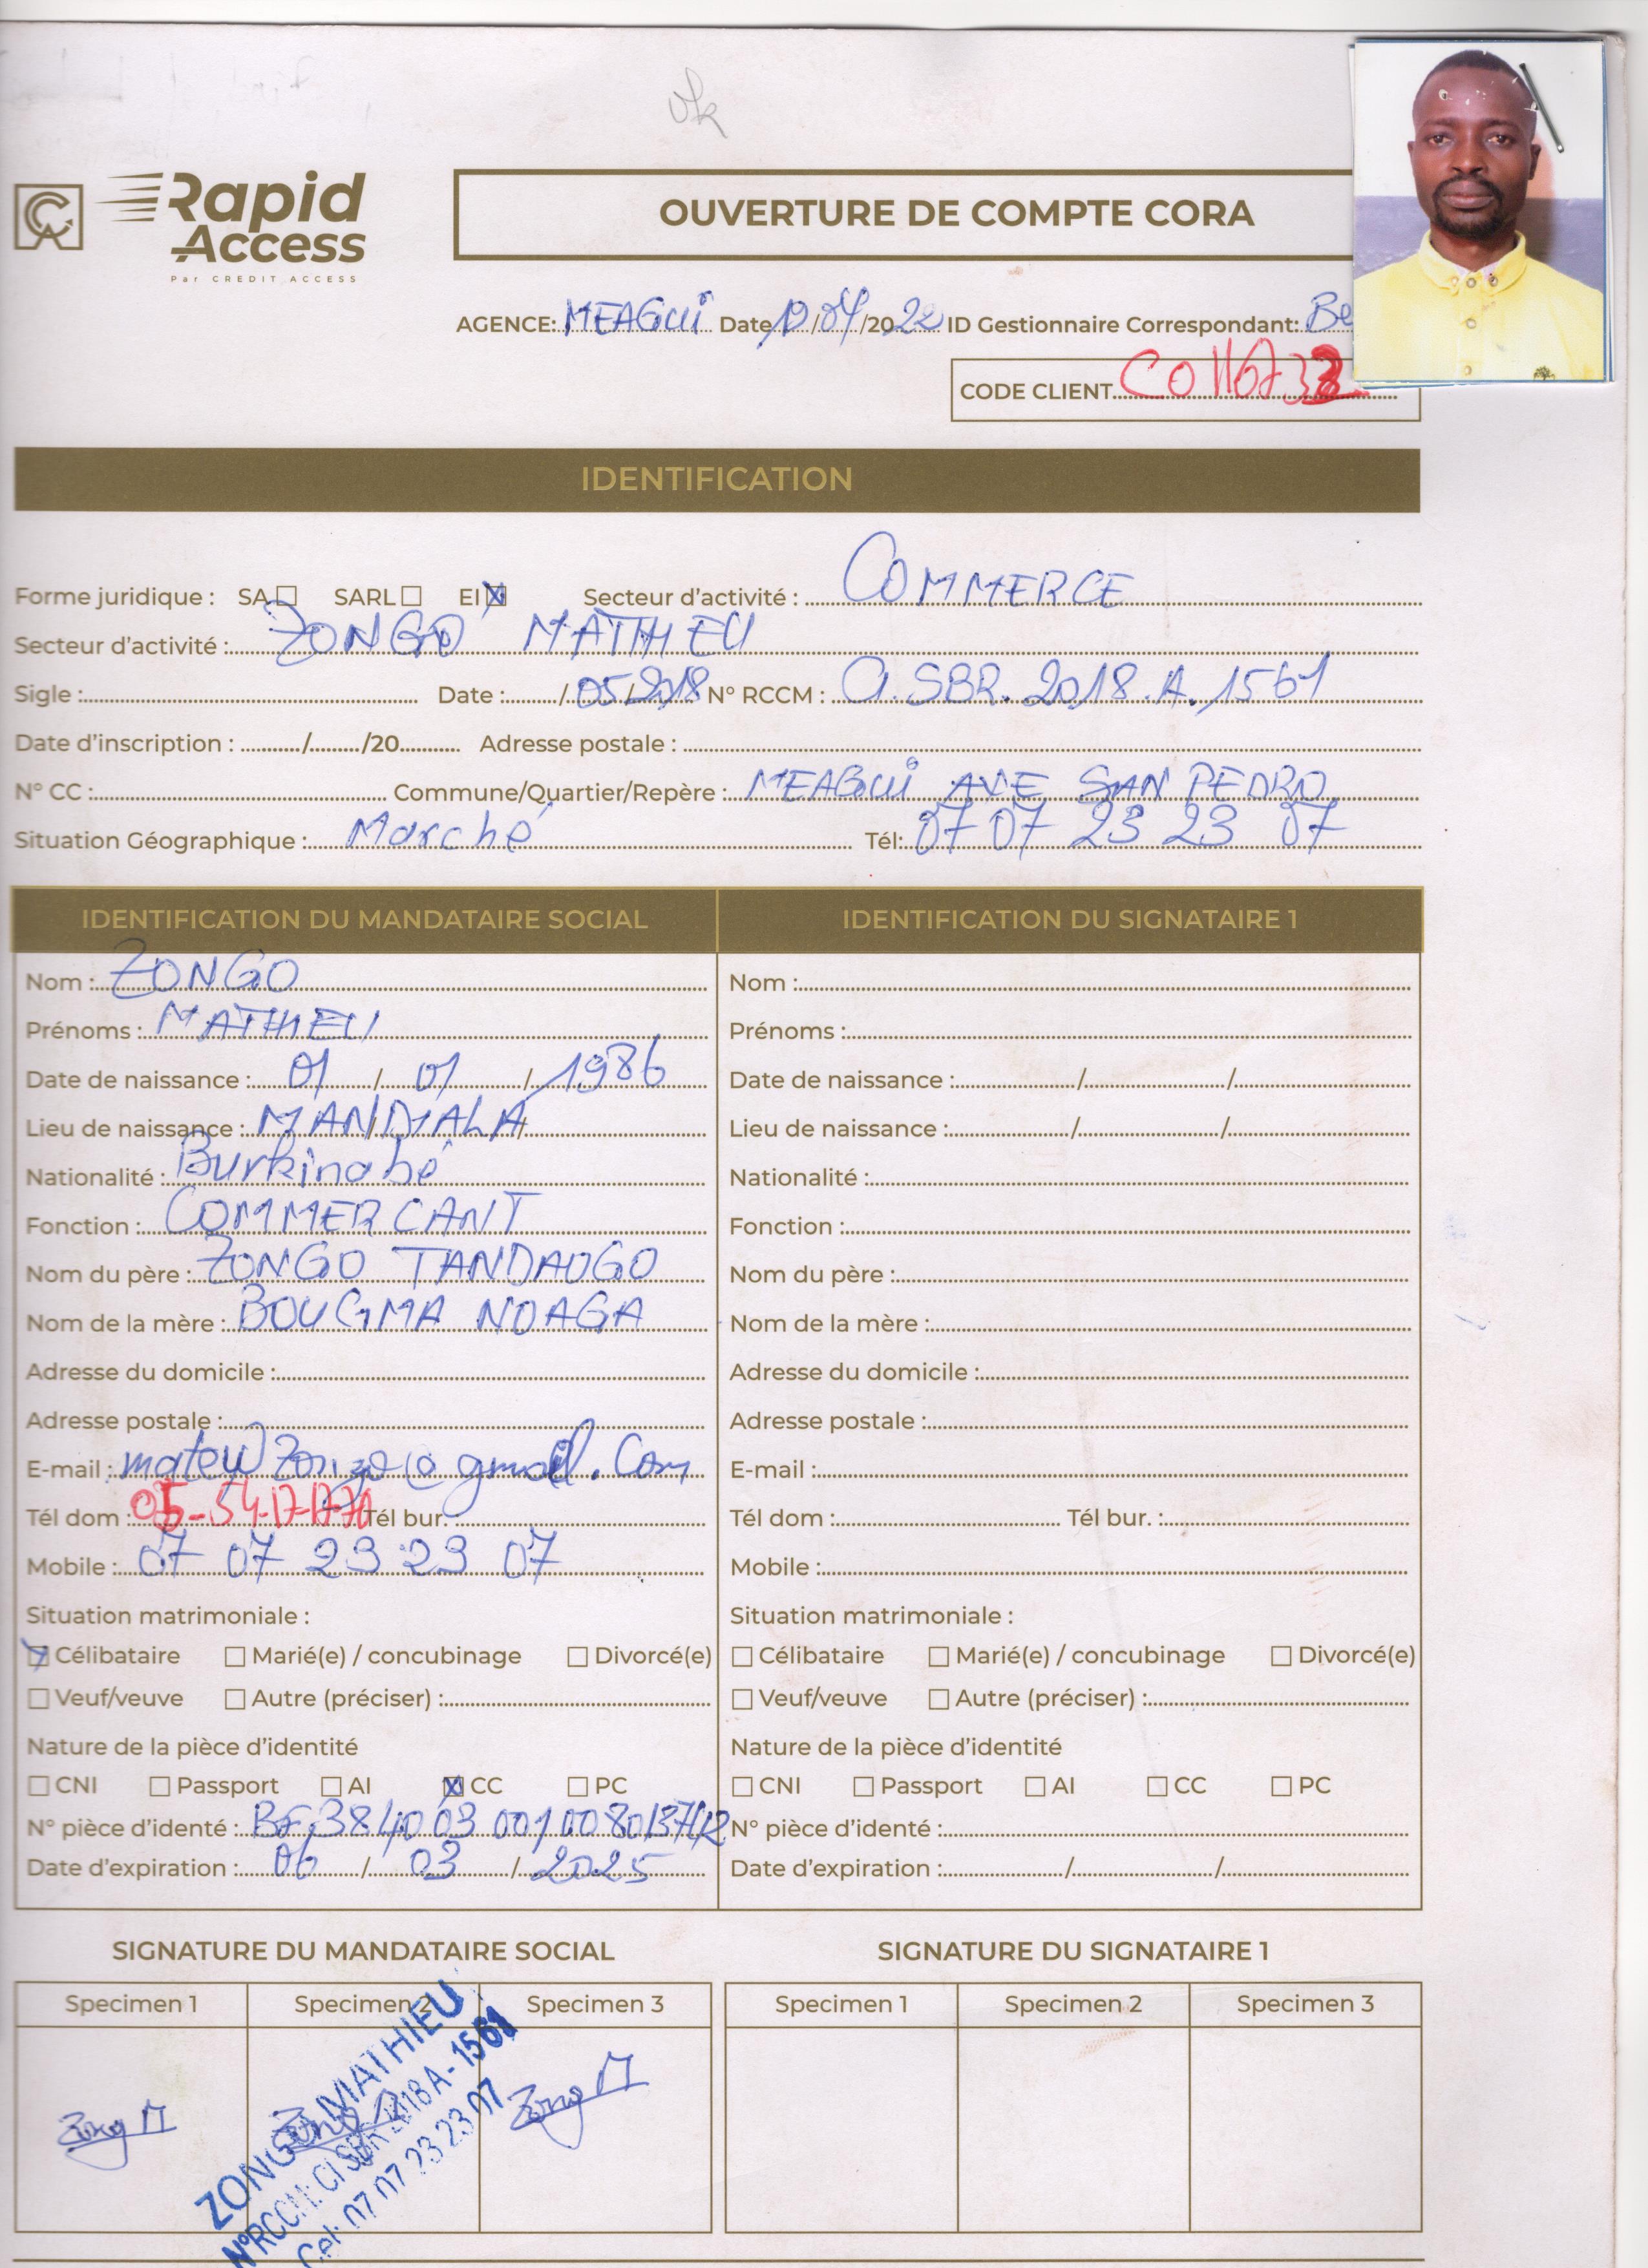 ok
CA Rapid Access
Par CREDIT ACCESS
OUVERTURE DE COMPTE CORA
AGENCE: MEAGUI Date 19/04/2022 ID Gestionnaire Correspondant: Be
CODE CLIENT
IDENTIFICATION
Forme juridique : SA SARL EI Secteur d'activité : COMMERCE
Secteur d'activité : ZONGO MATTHIEU
Sigle : Date : /05/2018 N° RCCM : CI.SBR.2018.A.1561
Date d'inscription : / /20 Adresse postale :
N° CC : Commune/Quartier/Repère : MEAGUI AXE SAN PEDRO
Situation Géographique : Marché Tél: 07 07 23 23 07
IDENTIFICATION DU MANDATAIRE SOCIAL
Nom : ZONGO
Prénoms : MATHIEU
Date de naissance : 01 / 01 / 1986
Lieu de naissance : MANDIALA
Nationalité : Burkinabé
Fonction : COMMERCANT
Nom du père : ZONGO TANDAOGO
Nom de la mère : BOUGMA NOAGA
Adresse du domicile :
Adresse postale :
E-mail : matewzongo@gmail.Com
Tél dom : 05-54-17-17-70 Tél bur. :
Mobile : 07 07 23 23 07
Situation matrimoniale :
Célibataire Marié(e) / concubinage Divorcé(e)
Veuf/veuve Autre (préciser) :
Nature de la pièce d'identité
CNI Passport AI CC PC
N° pièce d'identé : BF 384 03 001 00
Date d'expiration : 06 / 03 / 2025
IDENTIFICATION DU SIGNATAIRE 1
Nom :
Prénoms :
Date de naissance : / /
Lieu de naissance : / /
Nationalité :
Fonction :
Nom du père :
Nom de la mère :
Adresse du domicile :
Adresse postale :
E-mail :
Tél dom : Tél bur. :
Mobile :
Situation matrimoniale :
Célibataire Marié(e) / concubinage Divorcé(e)
Veuf/veuve Autre (préciser) :
Nature de la pièce d'identité
CNI Passport AI CC PC
N° pièce d'identé :
Date d'expiration : / /
SIGNATURE DU MANDATAIRE SOCIAL
Specimen 1 Specimen 2 Specimen 3
Zong M Zong M
ZONGO MATHIEU
N°RCCM: CI SBR 2018 A - 1561
Cel: 07 07 23 23 07
SIGNATURE DU SIGNATAIRE 1
Specimen 1 Specimen 2 Specimen 3